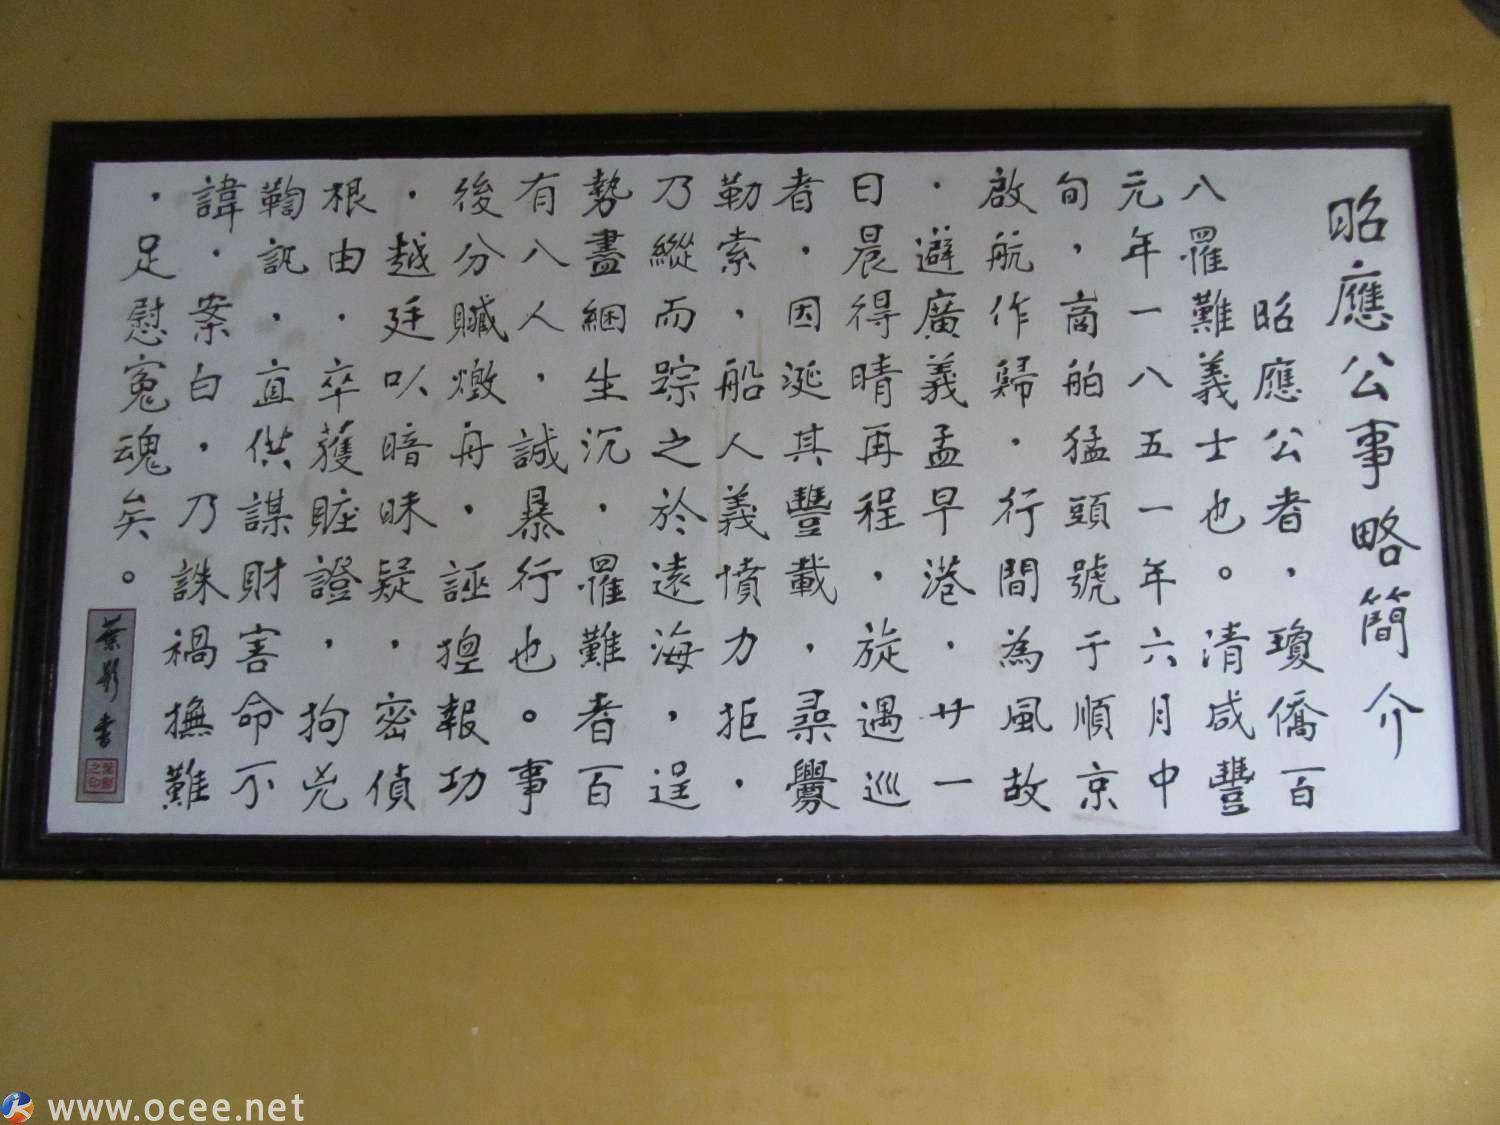 昭應公事略簡介
昭應公者，瓊僑百
八罹難義士也。清咸豐
元年一八五一年六月中
旬，商舶猛頭號于順京
啟航作歸．行間為風故
．避廣義孟早港．廿一
日晨得晴再程，旋遇巡
者，因涎其豐載，尋釁
勒索，船人義憤力拒．
乃縱而踪之於遠海，逞
勢盡綑生沉，罹難者百
有八人，誠暴行也。事
後分贓舟，誣報功
．越廷以暗昧疑，密偵
根由．卒獲賍證，拘兇
鞫訊，直供謀財害命不
諱．案白，乃誅禍撫難
，足慰寃魂矣。
葉影書
www.ocee.net